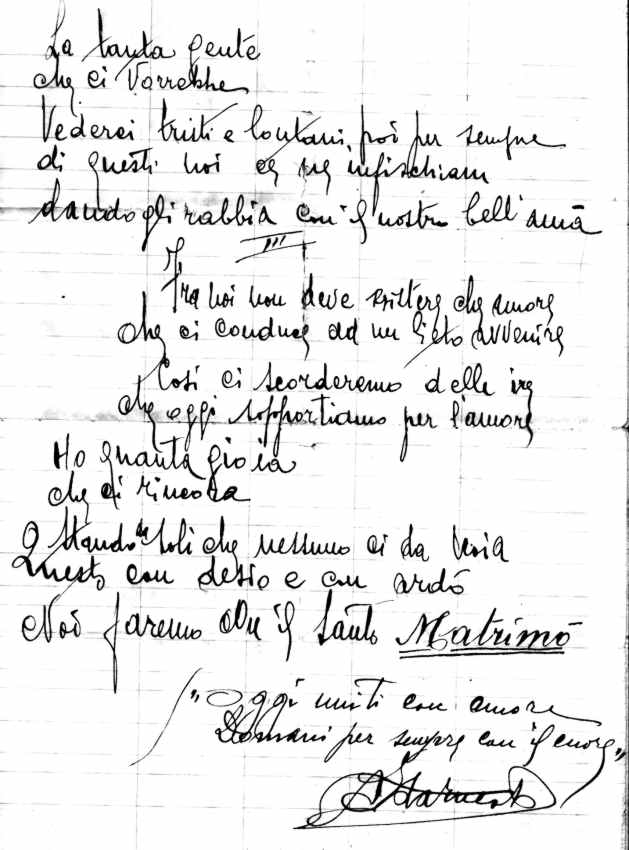 La tanta gente
che ci Vorrebbe
Vederci tristi e lontani, poi per sempre
di questi noi ce ne infischiam
dando gli rabbia con il nostro bell'amò
III
Tra noi non deve esistere che amore
che ci conduce ad un lieto avvenire
Cosi ci scorderemo delle ire
che oggi sopportiamo per l'amore
Ho quanta gioia
che ci rincora
Stando soli che nessuno ci da noia
Questo con desio e con ardò
Noi faremo con il Santo Matrimò
"Oggi uniti con amore
Domani per sempre con il cuore"